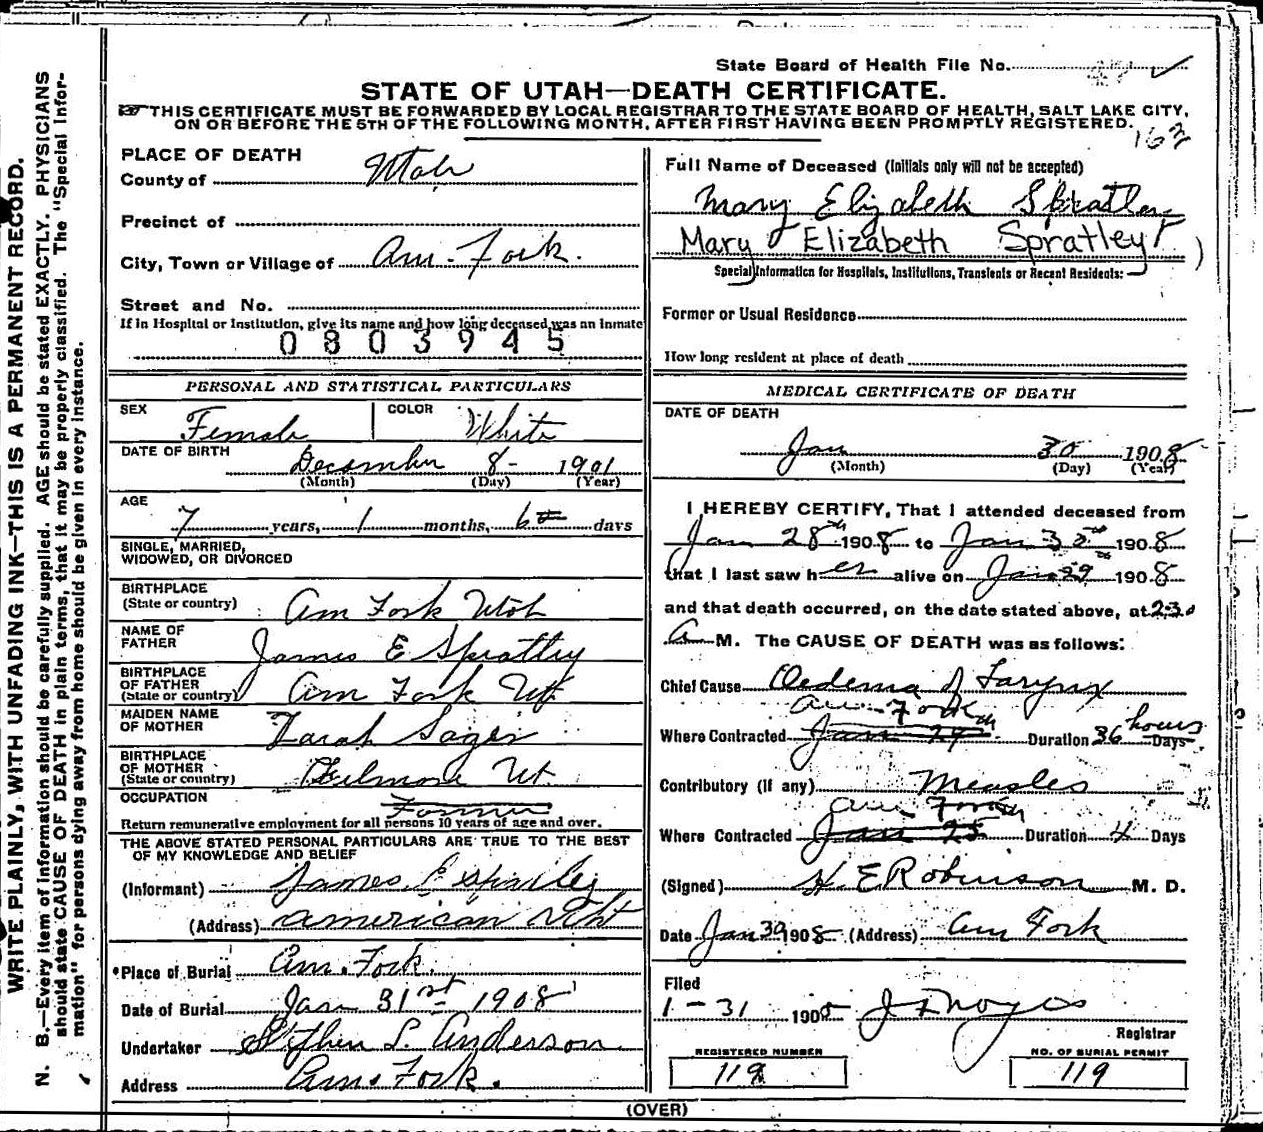 State Board of Health File No.
STATE OF UTAH—DEATH CERTIFICATE.
THIS CERTIFICATE MUST BE FORWARDED BY LOCAL REGISTRAR TO THE STATE BOARD OF HEALTH, SALT LAKE CITY,
ON OR BEFORE THE 5TH OF THE FOLLOWING MONTH, AFTER FIRST HAVING BEEN PROMPTLY REGISTERED.
163
PLACE OF DEATH
County of Utah
Precinct of
City, Town or Village of Am. Fork.
Street and No.
If in Hospital or Institution, give its name and how long deceased was an inmate
0803945
PERSONAL AND STATISTICAL PARTICULARS
SEX Female COLOR White
DATE OF BIRTH
December 8- 1901
(Month) (Day) (Year)
AGE
7 years, 1 months, days
SINGLE, MARRIED,
WIDOWED, OR DIVORCED
BIRTHPLACE
(State or country) Am Fork Utah
NAME OF
FATHER James E Spratley
BIRTHPLACE
OF FATHER
(State or country) Am Fork Ut
MAIDEN NAME
OF MOTHER Sarah Sager
BIRTHPLACE
OF MOTHER
(State or country) Filmore Ut.
OCCUPATION
Return remunerative employment for all persons 10 years of age and over.
THE ABOVE STATED PERSONAL PARTICULARS ARE TRUE TO THE BEST
OF MY KNOWLEDGE AND BELIEF
(Informant) James E Spratley
(Address) American
Place of Burial Am. Fork.
Date of Burial Jan 31st 1908
Undertaker Stephen L. Anderson
Address Am. Fork.
Full Name of Deceased (Initials only will not be accepted)
Mary Elizabeth Spratley
Mary Elizabeth Spratley
Special Information for Hospitals, Institutions, Transients or Recent Residents:
Former or Usual Residence
How long resident at place of death
MEDICAL CERTIFICATE OF DEATH
DATE OF DEATH
Jan 30 1908
(Month) (Day) (Year)
I HEREBY CERTIFY, That I attended deceased from
Jan 28th 1908 to Jan 30th 1908
that I last saw her alive on Jan 29 1908
and that death occurred, on the date stated above, at 2:30
A M. The CAUSE OF DEATH was as follows:
Chief Cause Oedema of Larynx
Am Fork
Where Contracted Duration 36 hours Days
Contributory (if any) Measles
Am Fork
Where Contracted Jan 25 Duration 4 Days
(Signed) H. E Robinson M. D.
Date Jan 30 1908 (Address) Am Fork
Filed
1-31 1908 J F Noyes
Registrar
REGISTERED NUMBER
119
NO. OF BURIAL PERMIT
119
(OVER)
WRITE PLAINLY, WITH UNFADING INK—THIS IS A PERMANENT RECORD.
N. B.—Every item of information should be carefully supplied. AGE should be stated EXACTLY. PHYSICIANS
should state CAUSE OF DEATH in plain terms, that it may be properly classified. The "Special Infor-
mation" for persons dying away from home should be given in every instance.